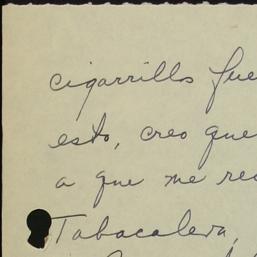 cigarrillos fue
esto, creo que
a que me re
Tabacalera,